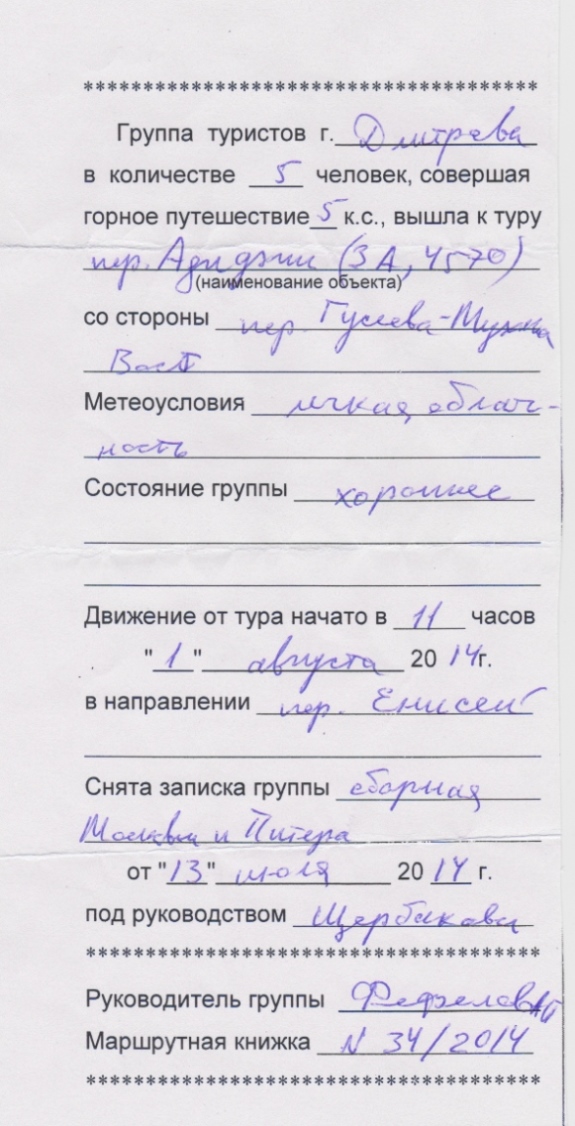 **************************************
Группа туристов г. Дмитрова
в количестве 5 человек, совершая
горное путешествие 5 к.с., вышла к туру
пер. Адыджи (3А, 4570)
(наименование объекта)
со стороны пер. Гусева-Мухина
Вост
Метеоусловия легкая облач-
ность
Состояние группы хорошее
Движение от тура начато в 11 часов
"1" августа 20 14г.
в направлении пер. Енисей
Снята записка группы сборная
Москвы и Питера
от "13" июля 20 14 г.
под руководством Щербакова
**************************************
Руководитель группы Фефелов АП
Маршрутная книжка N 34/2014
**************************************